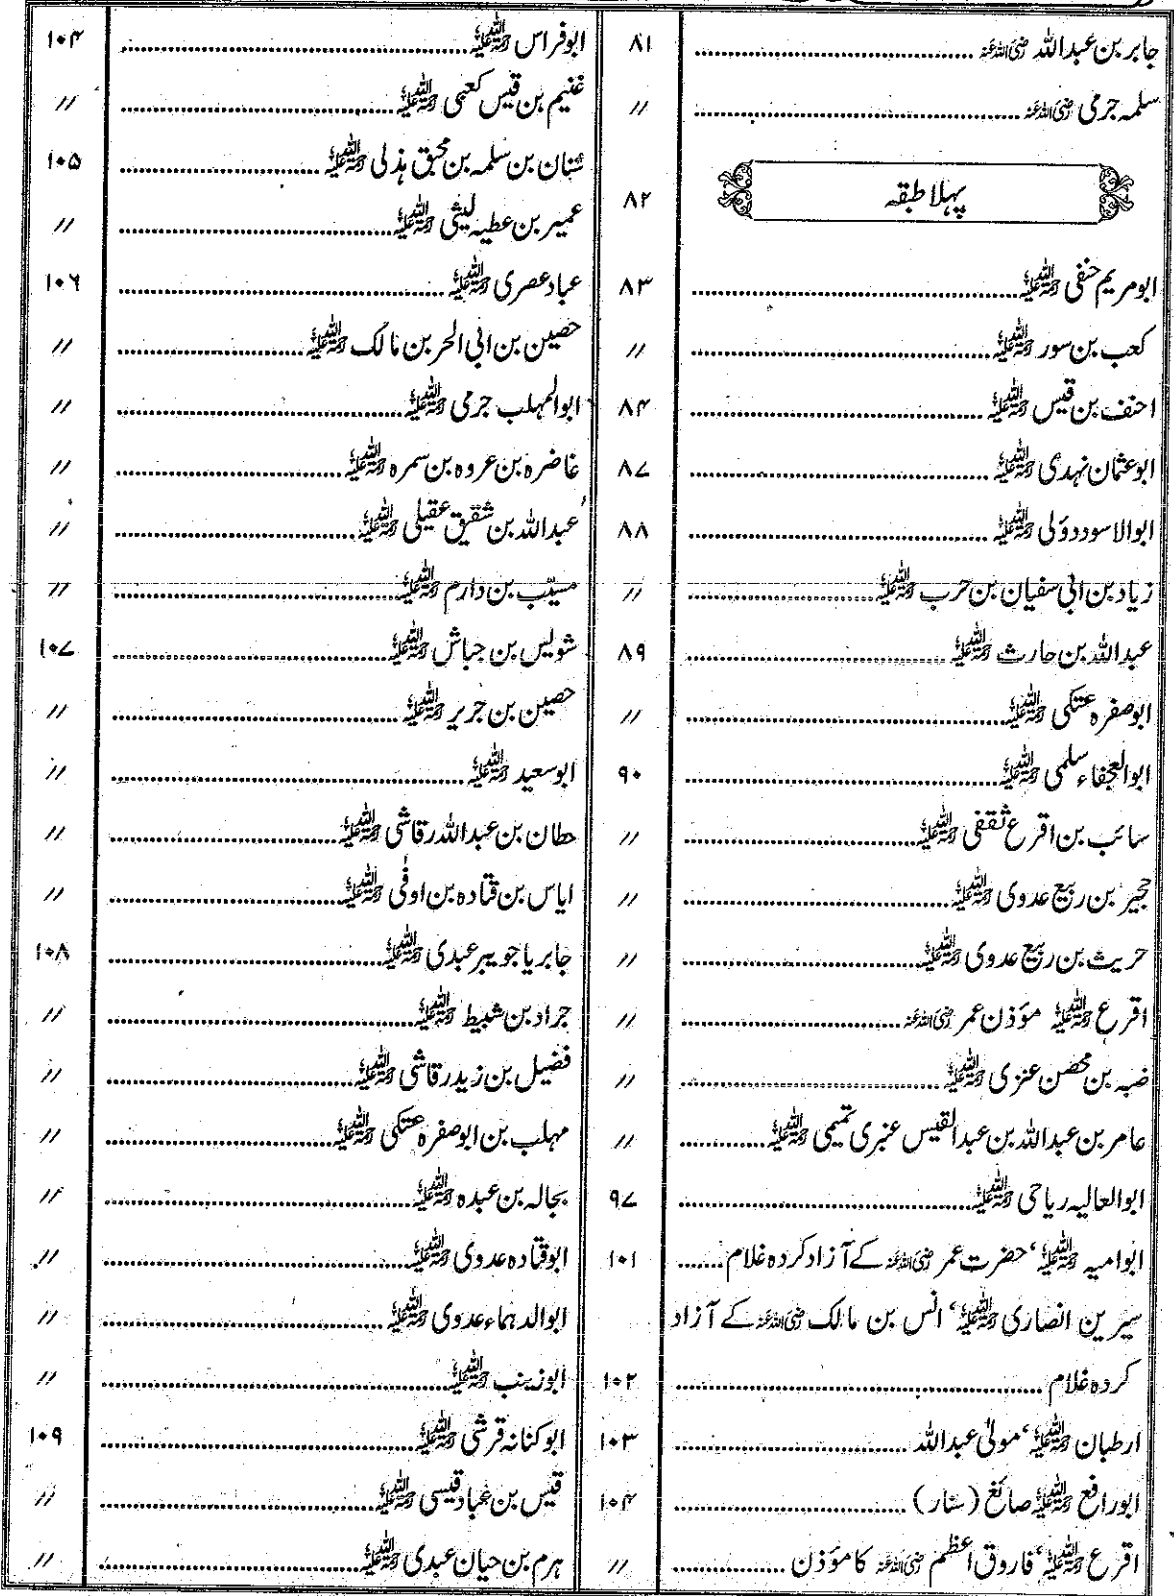 جابر بن عبداللہ رضی اللہ عنہ ........ ۸۱
سلمہ جرمی رضی اللہ عنہ ........ //
پہلا طبقہ ۸۲
ابو مریم حنفی رحمۃ اللہ علیہ ........ ۸۳
کعب بن سور رحمۃ اللہ علیہ ........ //
احنف بن قیس رحمۃ اللہ علیہ ........ ۸۴
ابوعثمان نہدی رحمۃ اللہ علیہ ........ ۸۷
ابوالاسود دؤلی رحمۃ اللہ علیہ ........ ۸۸
زیاد بن ابی سفیان بن حرب رحمۃ اللہ علیہ ........ //
عبداللہ بن حارث رحمۃ اللہ علیہ ........ ۸۹
ابوصفرہ عتکی رحمۃ اللہ علیہ ........ //
ابوالعجفاء سلمی رحمۃ اللہ علیہ ........ ۹۰
سائب بن اقرع ثقفی رحمۃ اللہ علیہ ........ //
حجیر بن ربیع عدوی رحمۃ اللہ علیہ ........ //
حریث بن ربیع عدوی رحمۃ اللہ علیہ ........ //
اقرع رحمۃ اللہ علیہ مؤذن عمر رضی اللہ عنہ ........ //
ضبہ بن محصن عنزی رحمۃ اللہ علیہ ........ //
عامر بن عبداللہ بن عبدالقیس عنبری تمیمی رحمۃ اللہ علیہ ........ //
ابوالعالیہ ریاحی رحمۃ اللہ علیہ ........ ۹۷
ابوامیہ رحمۃ اللہ علیہ، حضرت عمر رضی اللہ عنہ کے آزاد کردہ غلام ........ ۱۰۱
سیرین انصاری رحمۃ اللہ علیہ، انس بن مالک رضی اللہ عنہ کے آزاد
کردہ غلام ........ ۱۰۲
ارطبان رحمۃ اللہ علیہ، مولیٰ عبداللہ ........ ۱۰۳
ابورافع رحمۃ اللہ علیہ صائغ (سنار) ........ ۱۰۴
اقرع رحمۃ اللہ علیہ، فاروق اعظم رضی اللہ عنہ کا مؤذن ........ //
ابوفراس رحمۃ اللہ علیہ ........ ۱۰۴
غنیم بن قیس کعبی رحمۃ اللہ علیہ ........ //
سنان بن سلمہ بن محبق ہذلی رحمۃ اللہ علیہ ........ ۱۰۵
عمیر بن عطیہ لیثی رحمۃ اللہ علیہ ........ //
عباد عصری رحمۃ اللہ علیہ ........ ۱۰۶
حصین بن ابی الحر بن مالک رحمۃ اللہ علیہ ........ //
ابوالمہلب جرمی رحمۃ اللہ علیہ ........ //
غاضرہ بن عروہ بن سمرہ رحمۃ اللہ علیہ ........ //
عبداللہ بن شقیق عقیلی رحمۃ اللہ علیہ ........ //
مسیّب بن دارم رحمۃ اللہ علیہ ........ //
شویس بن جباش رحمۃ اللہ علیہ ........ ۱۰۷
حصین بن جریر رحمۃ اللہ علیہ ........ //
ابوسعید رحمۃ اللہ علیہ ........ //
حطان بن عبداللہ رقاشی رحمۃ اللہ علیہ ........ //
ایاس بن قتادہ بن اوفٰی رحمۃ اللہ علیہ ........ //
جابر یا جویبر عبدی رحمۃ اللہ علیہ ........ ۱۰۸
جراد بن شبیط رحمۃ اللہ علیہ ........ //
فضیل بن زید رقاشی رحمۃ اللہ علیہ ........ //
مہلب بن ابوصفرہ عتکی رحمۃ اللہ علیہ ........ //
بجالہ بن عبدہ رحمۃ اللہ علیہ ........ //
ابوقتادہ عدوی رحمۃ اللہ علیہ ........ //
ابوالدہماء عدوی رحمۃ اللہ علیہ ........ //
ابوزینب رحمۃ اللہ علیہ ........ //
ابوکنانہ قرشی رحمۃ اللہ علیہ ........ ۱۰۹
قیس بن عباد قیسی رحمۃ اللہ علیہ ........ //
ہرم بن حیان عبدی رحمۃ اللہ علیہ ........ //